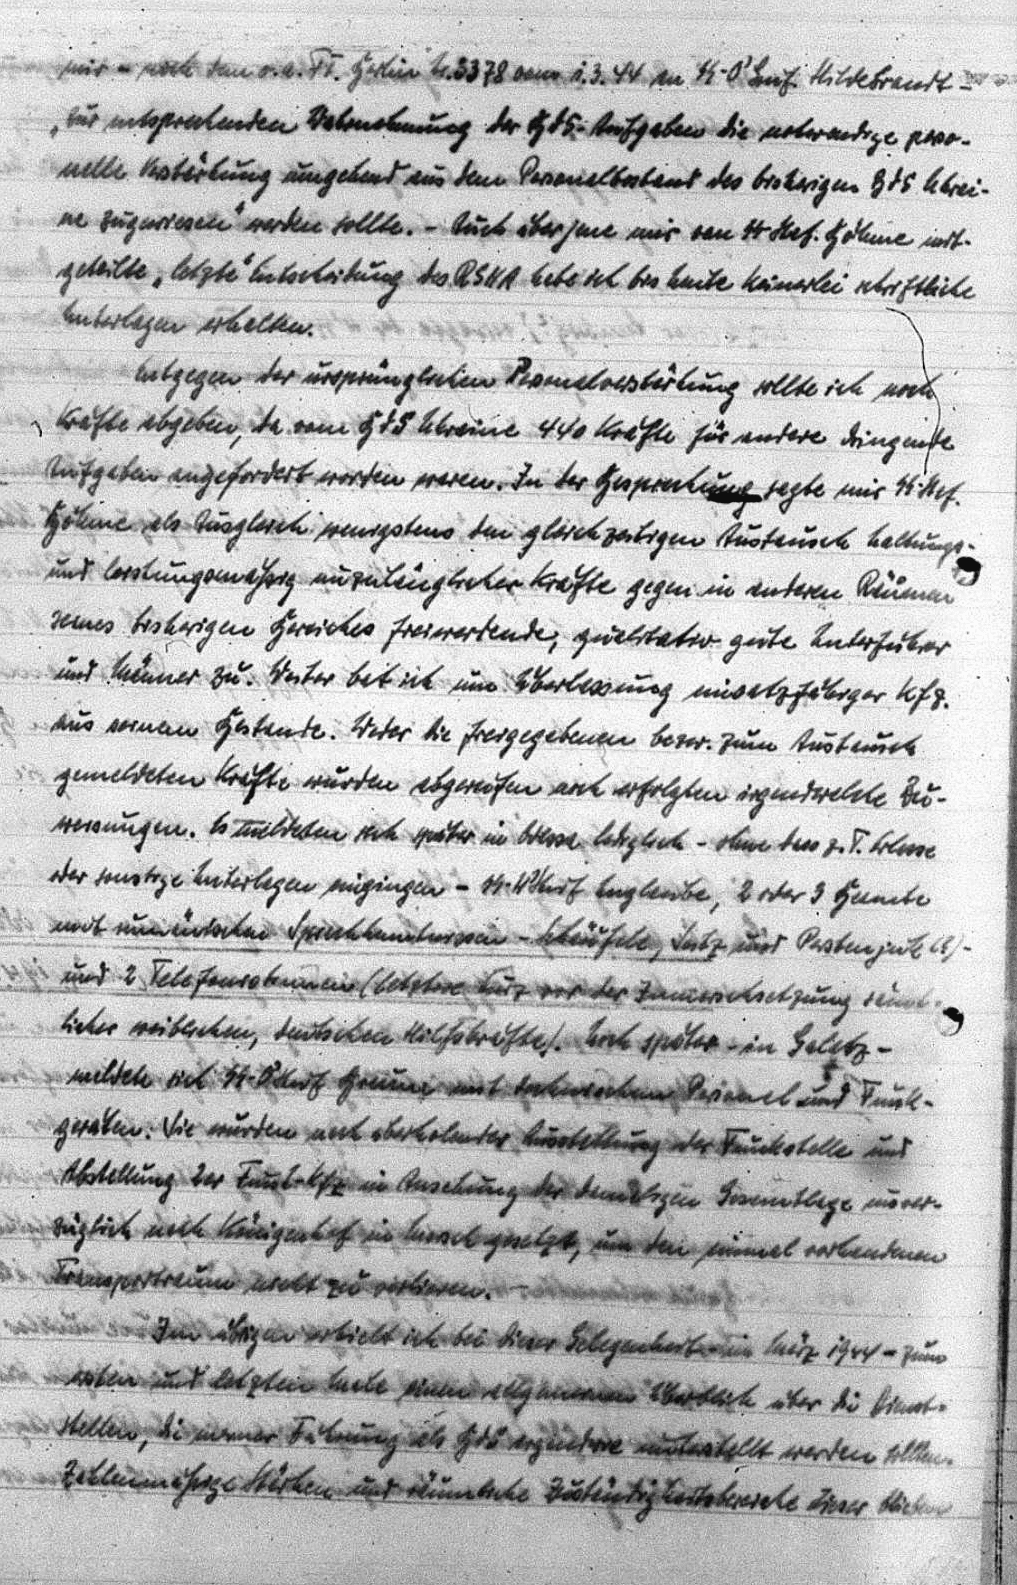 mir - nach dem o.a. FS. Berlin Nr. 3378 vom 1.3.44 an SS-O'Gruf. Hildebrandt -
"zur entsprechenden Wahrnehmung der BdS-Aufgaben die notwendige perso-
nelle Verstärkung umgehend aus dem Personalbestand des bisherigen BdS Ukrai-
ne zugewiesen" werden sollte. - Auch über jene mir von SS-Staf. Böhme mit-
geteilte "letzte" Entscheidung des RSHA habe ich bis heute keinerlei schriftliche
Unterlagen erhalten.
Entgegen der ursprünglichen Personalverstärkung sollte ich noch
Kräfte abgeben, da vom BdS Ukraine 440 Kräfte für andere dringende
Aufgaben angefordert worden waren. In der Besprechung sagte mir SS-Staf.
Böhme als Ausgleich wenigstens den gleichzeitigen Austausch haltungs-
und leistungsmäßig unzulänglicher Kräfte gegen in anderen Räumen
seines bisherigen Bereiches freiwerdende, qualitativ gute Unterführer
und Männer zu. Weiter bat ich um Überlassung einsatzfähiger Kfz.
aus seinem Bestande. Weder die freigegebenen bezw. zum Austausch
gemeldeten Kräfte wurden abgerufen noch erfolgten irgendwelche Zu-
weisungen. Es meldeten sich später in Odessa lediglich - ohne dass z.T. Erlasse
oder sonstige Unterlagen eingingen - SS- , 2 oder 3 Beamte
mit rumänischen Sprachkenntnissen - und -
und 2 Telefonistinnen (letztere kurz vor der Inmarschsetzung sämt-
licher weiblichen, deutschen Hilfskräfte). Noch später - in Galatz -
meldete sich SS- mit technischem Personal und Funk-
geräten. Sie wurden nach überholender der Funkstelle und
Abstellung der Funk-Kfz in Ansehung der damaligen Gesamtlage unver-
züglich nach in Marsch gesetzt, um den einmal vorhandenen
Transportraum nicht zu verlieren.
Im übrigen erhielt ich bei dieser Gelegenheit - im März 1944 - zum
ersten und letzten Male einen allgemeinen Überblick über die Dienst-
stellen, die meiner Führung als BdS irgendwie unterstellt werden sollten.
Zahlenmäßige Stärken und räumliche Zuständigkeitsbereiche dieser blieben